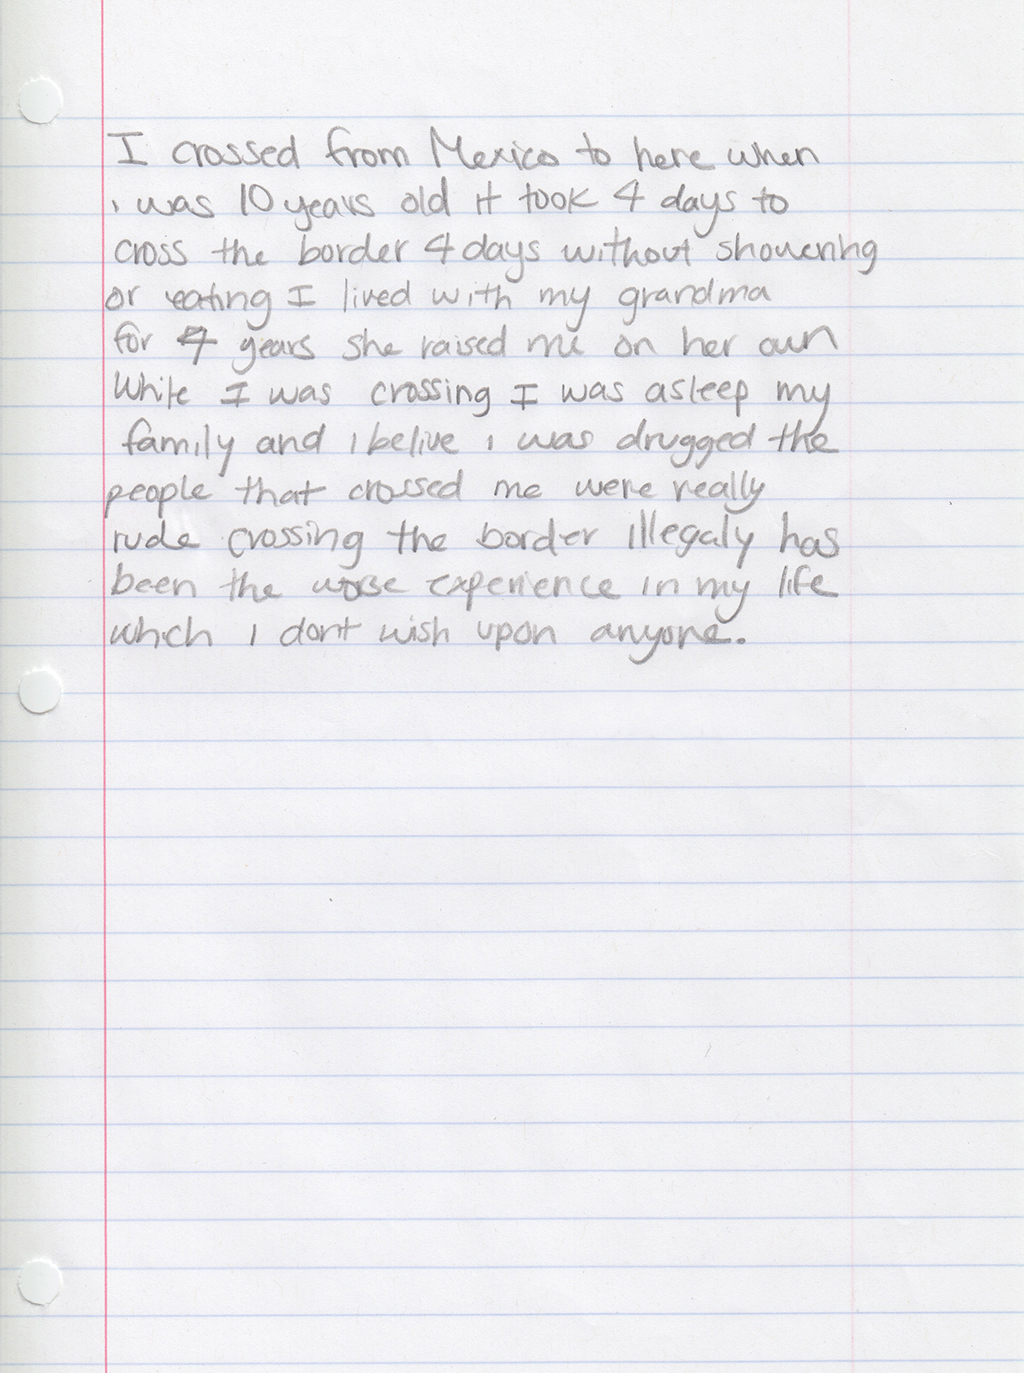 I crossed from Mexico to here when
i was 10 years old it took 4 days to
cross the border 4 days without showering
or eating I lived with my grandma
for 4 years she raised me on her own
While I was crossing I was asleep my
family and i belive i was drugged the
people that crossed me were really
rude crossing the border illegaly has
been the worse experience in my life
which i dont wish upon anyone.